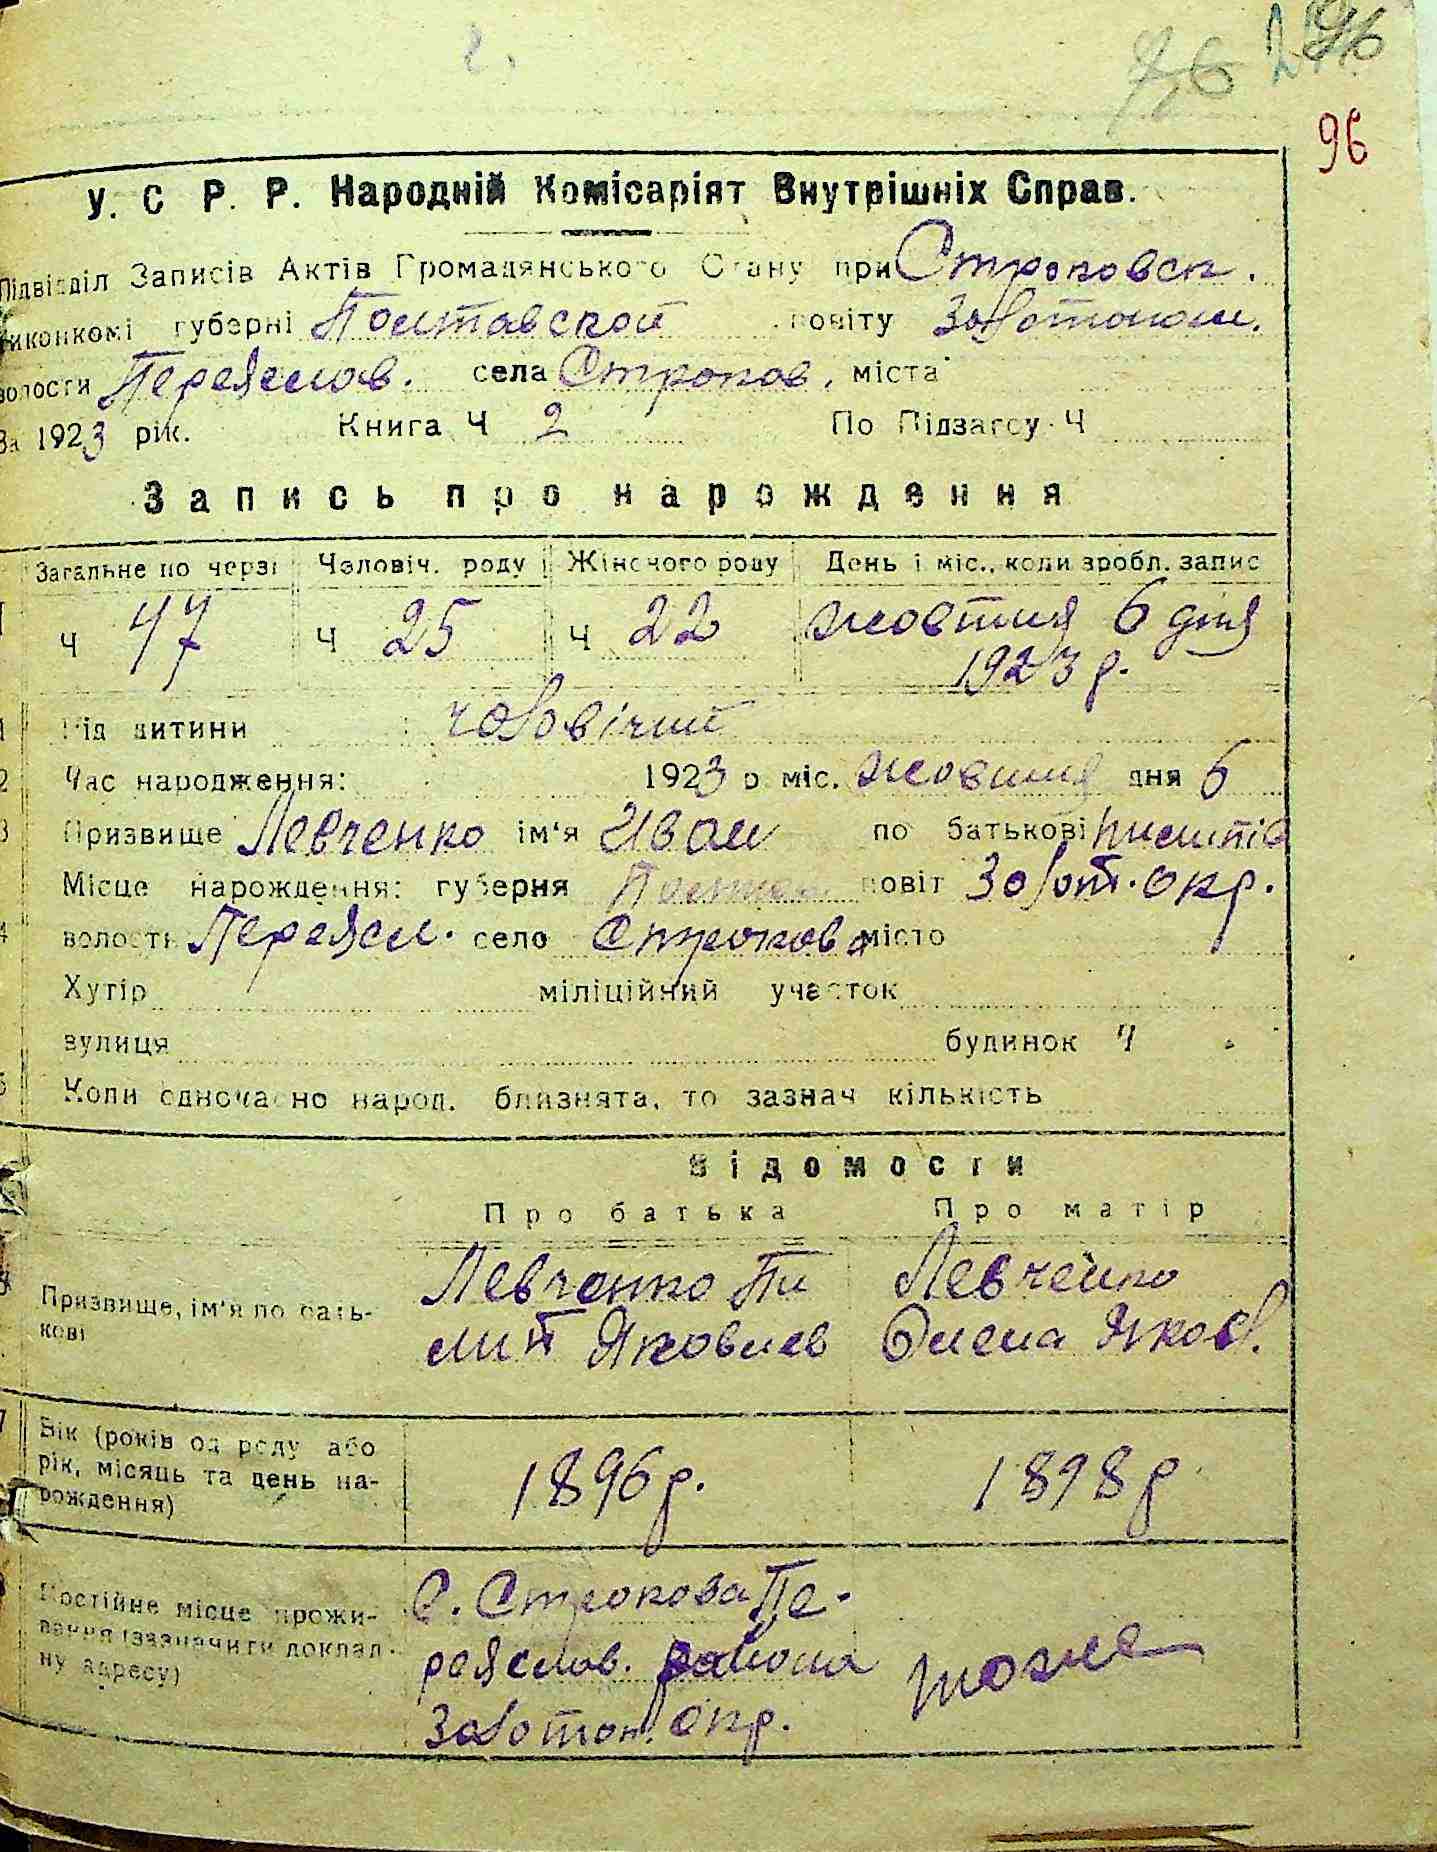 96
У. С Р. Р. Народній Комісаріят Внутрішніх Справ.
Підвідділ Записів Актів Громадянського Стану при Строковск.
виконкомі губерні Полтавской повіту Золотонош.
волости Переяслов. села Строков, міста
За 1923 рік. Книга Ч 2 По Підзагсу Ч
Запись про нарождення
Загальне по черзі Чоловіч. роду Жіночого роду День і міс., коли зробл. запис
Ч 47 Ч 25 Ч 22 жовтня 6 дня
1923 р.
1 Рід дитини чоловічий
2 Час народження: 1923 р міс. жовтня дня 6
3 Призвище Левченко ім'я Иван по батькові
Місце нарождення: губерня Полтав повіт Золот. окр.
4 волость Переясл. село Строкова місто
Хутір міліційний участок
вулиця будинок Ч
5 Коли одночасно народ. близнята, то зазнач кількість
Відомости
Про батька Про матір
Призвище, ім'я по бать-
кові
Левченко Пи
лип Яковлев
Левченко
Олена Яковл.
7 Вік (років од роду або
рік, місяць та день на-
рождення)
1896 р. 1898 р
Постійне місце прожи-
вання (зазначити доклад-
ну адресу)
с. Строкова Пе-
реяслов. района
Золотон. окр.
тоже